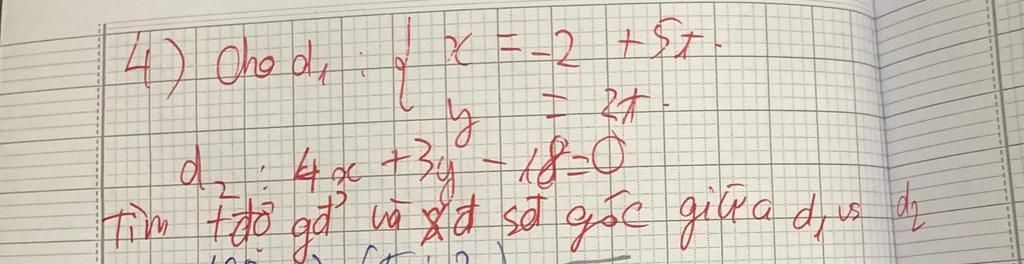 4) Cho d₁ : { x = -2 + 5t.
y = 2t.
d₂ : 4x + 3y - 18 = 0
Tìm tđộ gđ và xđ sđ góc giữa d₁ vs d₂